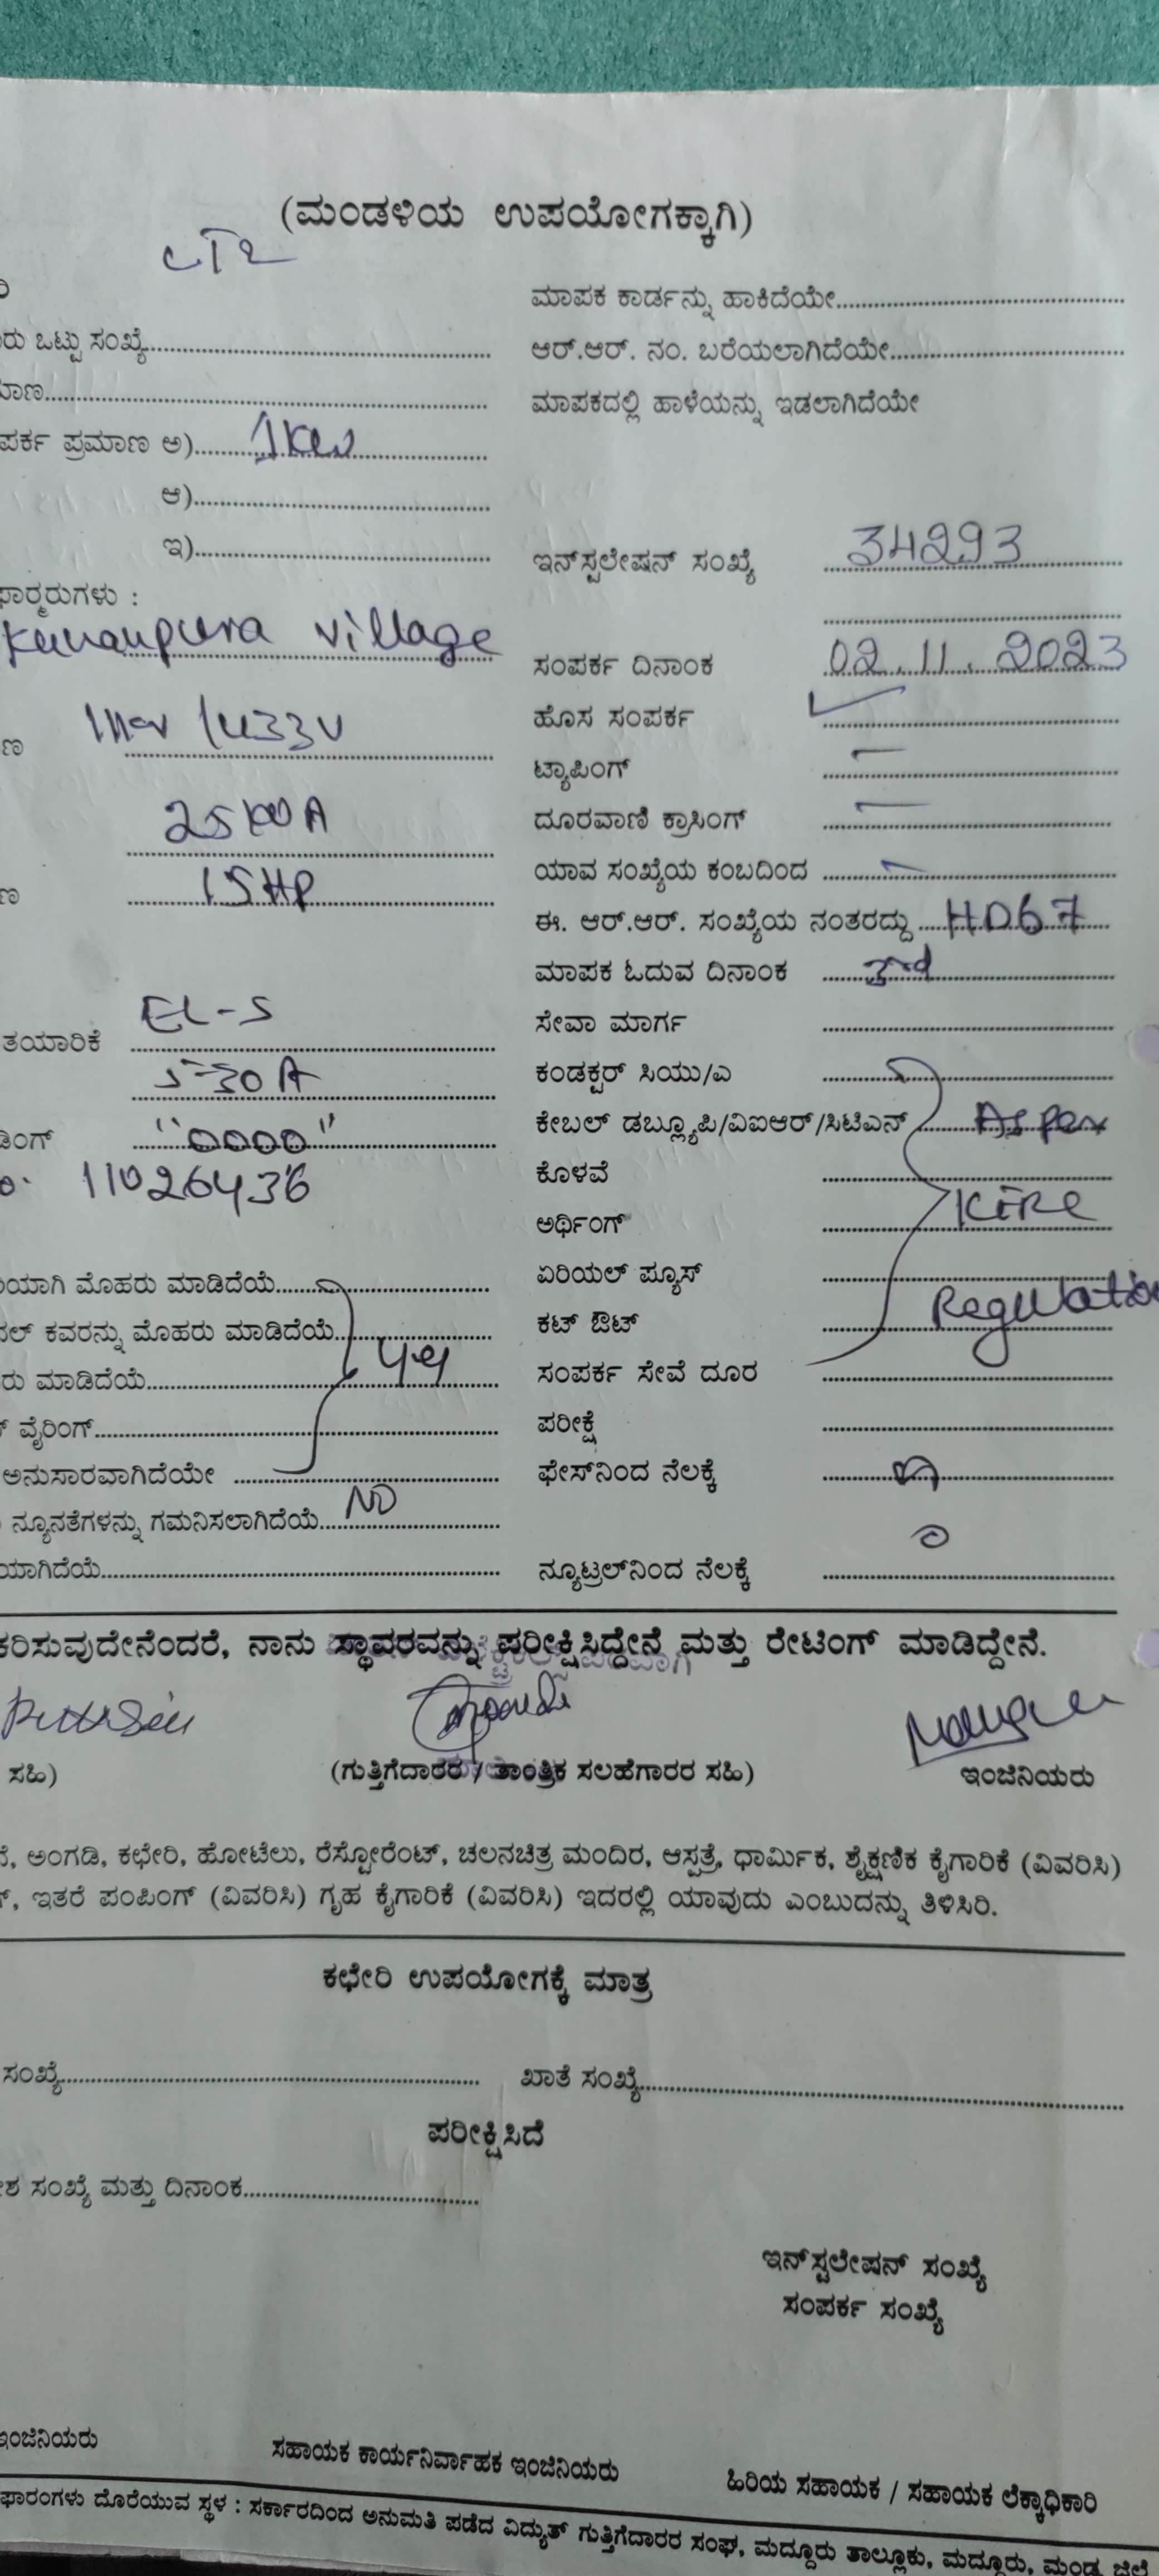 (ಮಂಡಳಿಯ ಉಪಯೋಗಕ್ಕಾಗಿ)
ರು ಒಟ್ಟು ಸಂಖ್ಯೆ
ಪರ್ಕ ಪ್ರಮಾಣ ಅ) 1KW
ಆ)
ಇ)
ಫಾರ್ಮರುಗಳು :
village
25KVA
15HP
ತಯಾರಿಕೆ EL-S
5-30A
ಡಿಂಗ್ "0000"
11026436
ಯಾಗಿ ಮೊಹರು ಮಾಡಿದೆಯೆ
ನಲ್ ಕವರನ್ನು ಮೊಹರು ಮಾಡಿದೆಯೆ
ರು ಮಾಡಿದೆಯೆ
ವೈರಿಂಗ್
ಅನುಸಾರವಾಗಿದೆಯೇ
ನ್ಯೂನತೆಗಳನ್ನು ಗಮನಿಸಲಾಗಿದೆಯೆ NO
ಯಾಗಿದೆಯೆ
ಮಾಪಕ ಕಾರ್ಡನ್ನು ಹಾಕಿದೆಯೇ
ಆರ್.ಆರ್. ನಂ. ಬರೆಯಲಾಗಿದೆಯೇ
ಮಾಪಕದಲ್ಲಿ ಹಾಳೆಯನ್ನು ಇಡಲಾಗಿದೆಯೇ
ಇನ್‌ಸ್ಟಲೇಷನ್ ಸಂಖ್ಯೆ 34293
ಸಂಪರ್ಕ ದಿನಾಂಕ 02.11.2023
ಹೊಸ ಸಂಪರ್ಕ ✓
ಟ್ಯಾಪಿಂಗ್ –
ದೂರವಾಣಿ ಕ್ರಾಸಿಂಗ್ –
ಯಾವ ಸಂಖ್ಯೆಯ ಕಂಬದಿಂದ –
ಈ. ಆರ್.ಆರ್. ಸಂಖ್ಯೆಯ ನಂತರದ್ದು HD67
ಮಾಪಕ ಓದುವ ದಿನಾಂಕ 3rd
ಸೇವಾ ಮಾರ್ಗ
ಕಂಡಕ್ಟರ್ ಸಿಯು/ಎ
ಕೇಬಲ್ ಡಬ್ಲ್ಯೂಪಿ/ವಿಐಆರ್/ಸಿಟಿಎಸ್ As per
ಕೊಳವೆ
ಅರ್ಥಿಂಗ್ KERC
ಏರಿಯಲ್ ಫ್ಯೂಸ್
ಕಟ್ ಔಟ್ Regulation
ಸಂಪರ್ಕ ಸೇವೆ ದೂರ
ಪರೀಕ್ಷೆ
ಫೇಸ್‌ನಿಂದ ನೆಲಕ್ಕೆ
ನ್ಯೂಟ್ರಲ್‌ನಿಂದ ನೆಲಕ್ಕೆ
ಕರಿಸುವುದೇನೆಂದರೆ, ನಾನು ಸ್ಥಾವರವನ್ನು ಪರೀಕ್ಷಿಸಿದ್ದೇನೆ ಮತ್ತು ರೇಟಿಂಗ್ ಮಾಡಿದ್ದೇನೆ.
ಸಹಿ) (ಗುತ್ತಿಗೆದಾರರ / ತಾಂತ್ರಿಕ ಸಲಹೆಗಾರರ ಸಹಿ) ಇಂಜಿನಿಯರು
ನೆ, ಅಂಗಡಿ, ಕಛೇರಿ, ಹೋಟೆಲು, ರೆಸ್ಟೋರೆಂಟ್, ಚಲನಚಿತ್ರ ಮಂದಿರ, ಆಸ್ಪತ್ರೆ, ಧಾರ್ಮಿಕ, ಶೈಕ್ಷಣಿಕ ಕೈಗಾರಿಕೆ (ವಿವರಿಸಿ)
್, ಇತರೆ ಪಂಪಿಂಗ್ (ವಿವರಿಸಿ) ಗೃಹ ಕೈಗಾರಿಕೆ (ವಿವರಿಸಿ) ಇದರಲ್ಲಿ ಯಾವುದು ಎಂಬುದನ್ನು ತಿಳಿಸಿರಿ.
ಕಛೇರಿ ಉಪಯೋಗಕ್ಕೆ ಮಾತ್ರ
ಸಂಖ್ಯೆ ಖಾತೆ ಸಂಖ್ಯೆ
ಪರೀಕ್ಷಿಸಿದೆ
ಶ ಸಂಖ್ಯೆ ಮತ್ತು ದಿನಾಂಕ
ಇನ್‌ಸ್ಟಲೇಷನ್ ಸಂಖ್ಯೆ
ಸಂಪರ್ಕ ಸಂಖ್ಯೆ
ಇಂಜಿನಿಯರು ಸಹಾಯಕ ಕಾರ್ಯನಿರ್ವಾಹಕ ಇಂಜಿನಿಯರು ಹಿರಿಯ ಸಹಾಯಕ / ಸಹಾಯಕ ಲೆಕ್ಕಾಧಿಕಾರಿ
ಫಾರಂಗಳು ದೊರೆಯುವ ಸ್ಥಳ : ಸರ್ಕಾರದಿಂದ ಅನುಮತಿ ಪಡೆದ ವಿದ್ಯುತ್ ಗುತ್ತಿಗೆದಾರರ ಸಂಘ, ಮದ್ದೂರು ತಾಲ್ಲೂಕು, ಮದ್ದೂರು, ಮಂಡ್ಯ ಜಿಲ್ಲೆ